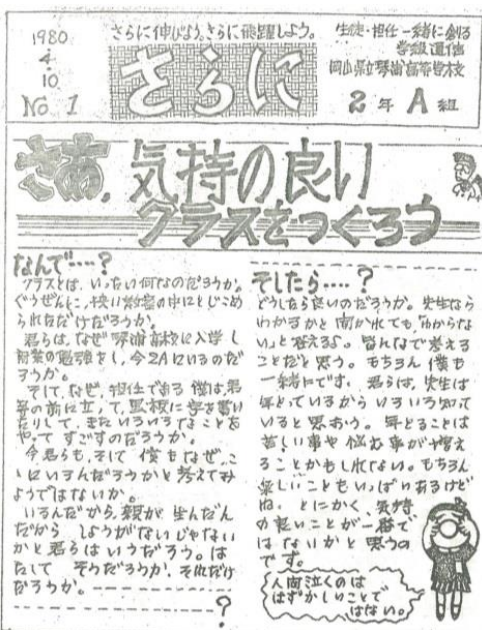 1980
4
10
No. 1
さらに伸びよう。さらに飛躍しよう。
さらに
生徒・担任一緒に創る
学級通信
岡山県立琴浦高等学校
2年A組
さあ、気持の良い
クラスをつくろう
なんで・・・・?
クラスとは、いったい何なのだろうか。
ぐうぜんに、狭い教室の中にとじこめ
られただけだろうか。
君らは、なぜ琴浦高校に入学し
の勉強をし、今2Aにいるのだ
ろうか。
そして、なぜ、担任である僕は、君
等の前に立って、黒板に字を書い
たりして、またいろいろなことを
やってすごすのだろうか。
今君らも、そして僕もなぜ、こ
こにいるんだろうかと考えてみ
ようではないか。
いるんだから、親が生んだん
だからしょうがないじゃない
かと君らはいうだろう。は
たしてそうだろうか、それだけ
だろうか。
?
そしたら・・・・?
どうしたら良いのだろうか。先生なら
わかるかと聞かれても、「わからな
い」と答えるよ。皆んなで考える
ことだと思う。もちろん僕も
一緒にです。君らは、先生は
年とっているからいろいろ知って
いると思おう。年とることは
苦しい事や悩む事が増え
ることかもしれない。もちろん
楽しいこともいっぱいあるけど
ね。とにかく、気持
の軽いことが一番で
はないかと思うの
です。
人間泣くのは
はずかしいことで
はない。